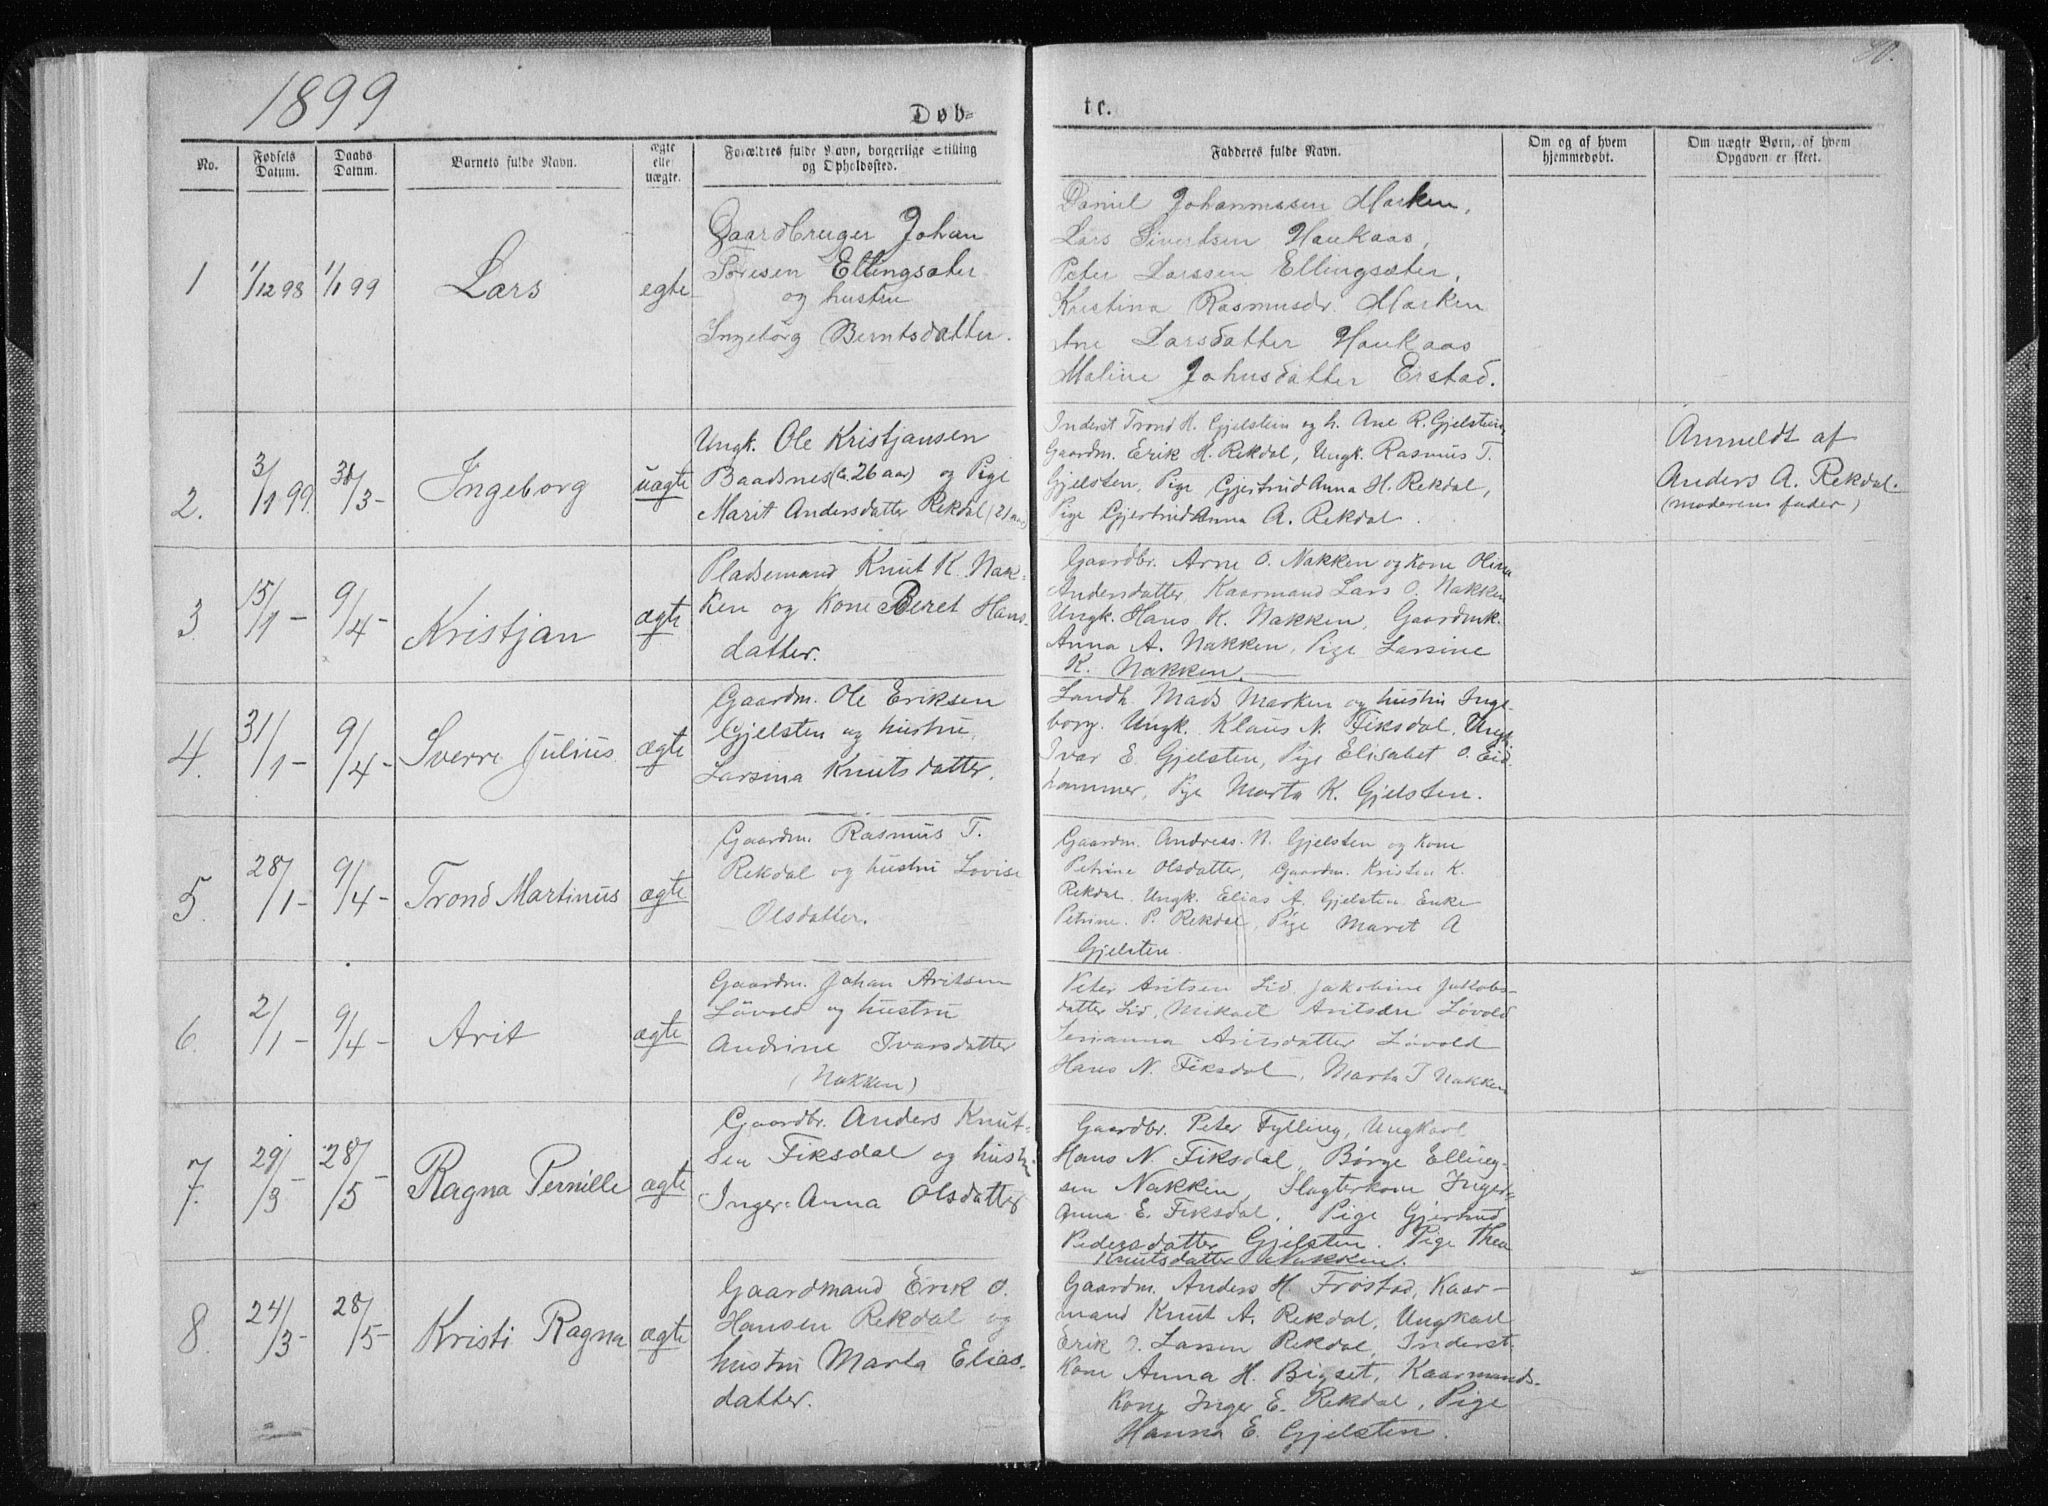 1899
Døb-
te.
No.
Fødsels Datum.
Daabs Datum.
Barnets fulde Navn.
ægte elle uægte.
Forældres fulde Navn, borgerlige Stilling og Opholdssted.
Fadderes fulde Navn.
Om og af hvem hjemmedøbt.
Om uægte Børn, af hvem Opgaven er skeet.
1
1/12 98
1/1 99
Lars
egte
Gaardbruger Johan
Ellingsæter
og hustru
Ingeborg Berntsdatter.
Daniel Johannessen Marken,
Lars Sivertsen Haukaas,
Peter Larssen Ellingsæter,
Kristina Rasmusdr. Marken
Ane Larsdatter Haukaas
Maline Johusdatter Erstad.
2.
3/1 99.
/3-
Ingeborg
uægte
Ungk. Ole Kristjansen
Baadsnes (c. 26 aar) og Pige
Marit Andersdatter Rekdal (21 aar)
Inderst Trond H. Gjelsten og h. Ane R. Gjelsten,
Gaardm. Erik H. Rekdal, Ungk. Rasmus T.
Gjelsten, Pige Gjertrud Anna H. Rekdal,
Pige Gjertrud Anna A. Rekdal.
Anmeldt af
Anders A. Rekdal.
(moderens fader)
3
15/1 -
9/4 -
Kristjan
ægte
Pladsemand Knut K. Nak-
ken og Kone Beret Hans-
datter.
Gaardbr. Arne O. Nakken og kone Olina
Andersdatter, Kaarmand Lars O. Nakken
Ungk. Hans K. Nakken, Gaardmk.
Anna A. Nakken, Pige Larsine
K. Nakken.
4.
31/1 -
9/4 -
Sverre Julius
ægte
Gaardm. Ole Eriksen
Gjelsten og hustru
Larsina Knutsdatter.
Landh. Mads Marken og hustru Inge-
borg. Ungk. Klaus N. Fiksdal, Ungk
Ivar E. Gjelsten, Pige Elisabet O. Eid-
hammer, Pige Marta K. Gjelsten.
5.
28/1 -
9/4 -
Trond Martinus
ægte
Gaardm. Rasmus T.
Rekdal og hustru Lovise
Olsdatter.
Gaardm. Andreas N. Gjelsten og kone
Petrine Olsdatter, Gaardm. Kristen K.
Rekdal. Ungk. Elias A. Gjelsten Enke
Petrine P. Rekdal, Pige Maret A
Gjelsten.
6.
2/1 -
9/4 -
Arit
ægte
Gaardm. Johan Aritsen
Løvold og hustru
Andrine Ivarsdatter
(Nakken)
Peter Aritsen Lid. Jakobine Jakobs-
datter Lid, Mikael Aritsen Løvold
Aritsdatter Løvold
Hans N. Fiksdal, Marta I Nakken
7.
29/3 -
28/5 -
Ragna Pernille
ægte
Gaardbr. Anders Knut-
sen Fiksdal og hustru
Inger-Anna Olsdatter
Gaardbr. Peter Fylling, Ungkarl
Hans N. Fiksdal, Børge Elling-
sen Nakken, Slagterkone
Anna E. Fiksdal, Pige Gjertrud
Pedersdatter Gjelsten. Pige Thea
Knutsdatter Nakken.
8.
24/3 -
28/5 -
Kristi Ragna
ægte
Gaardmand Erik O.
Hansen Rekdal og
hustru Marta Elias-
datter.
Gaardm. Anders H. Frostad, Kaar-
mand Knut A. Rekdal, Ungkarl
Erik J. Larsen Rekdal, Inderst-
kone Anna H. Bigset, Kaarmands-
kone Inger E. Rekdal, Pige
Hanna E. Gjelsten.